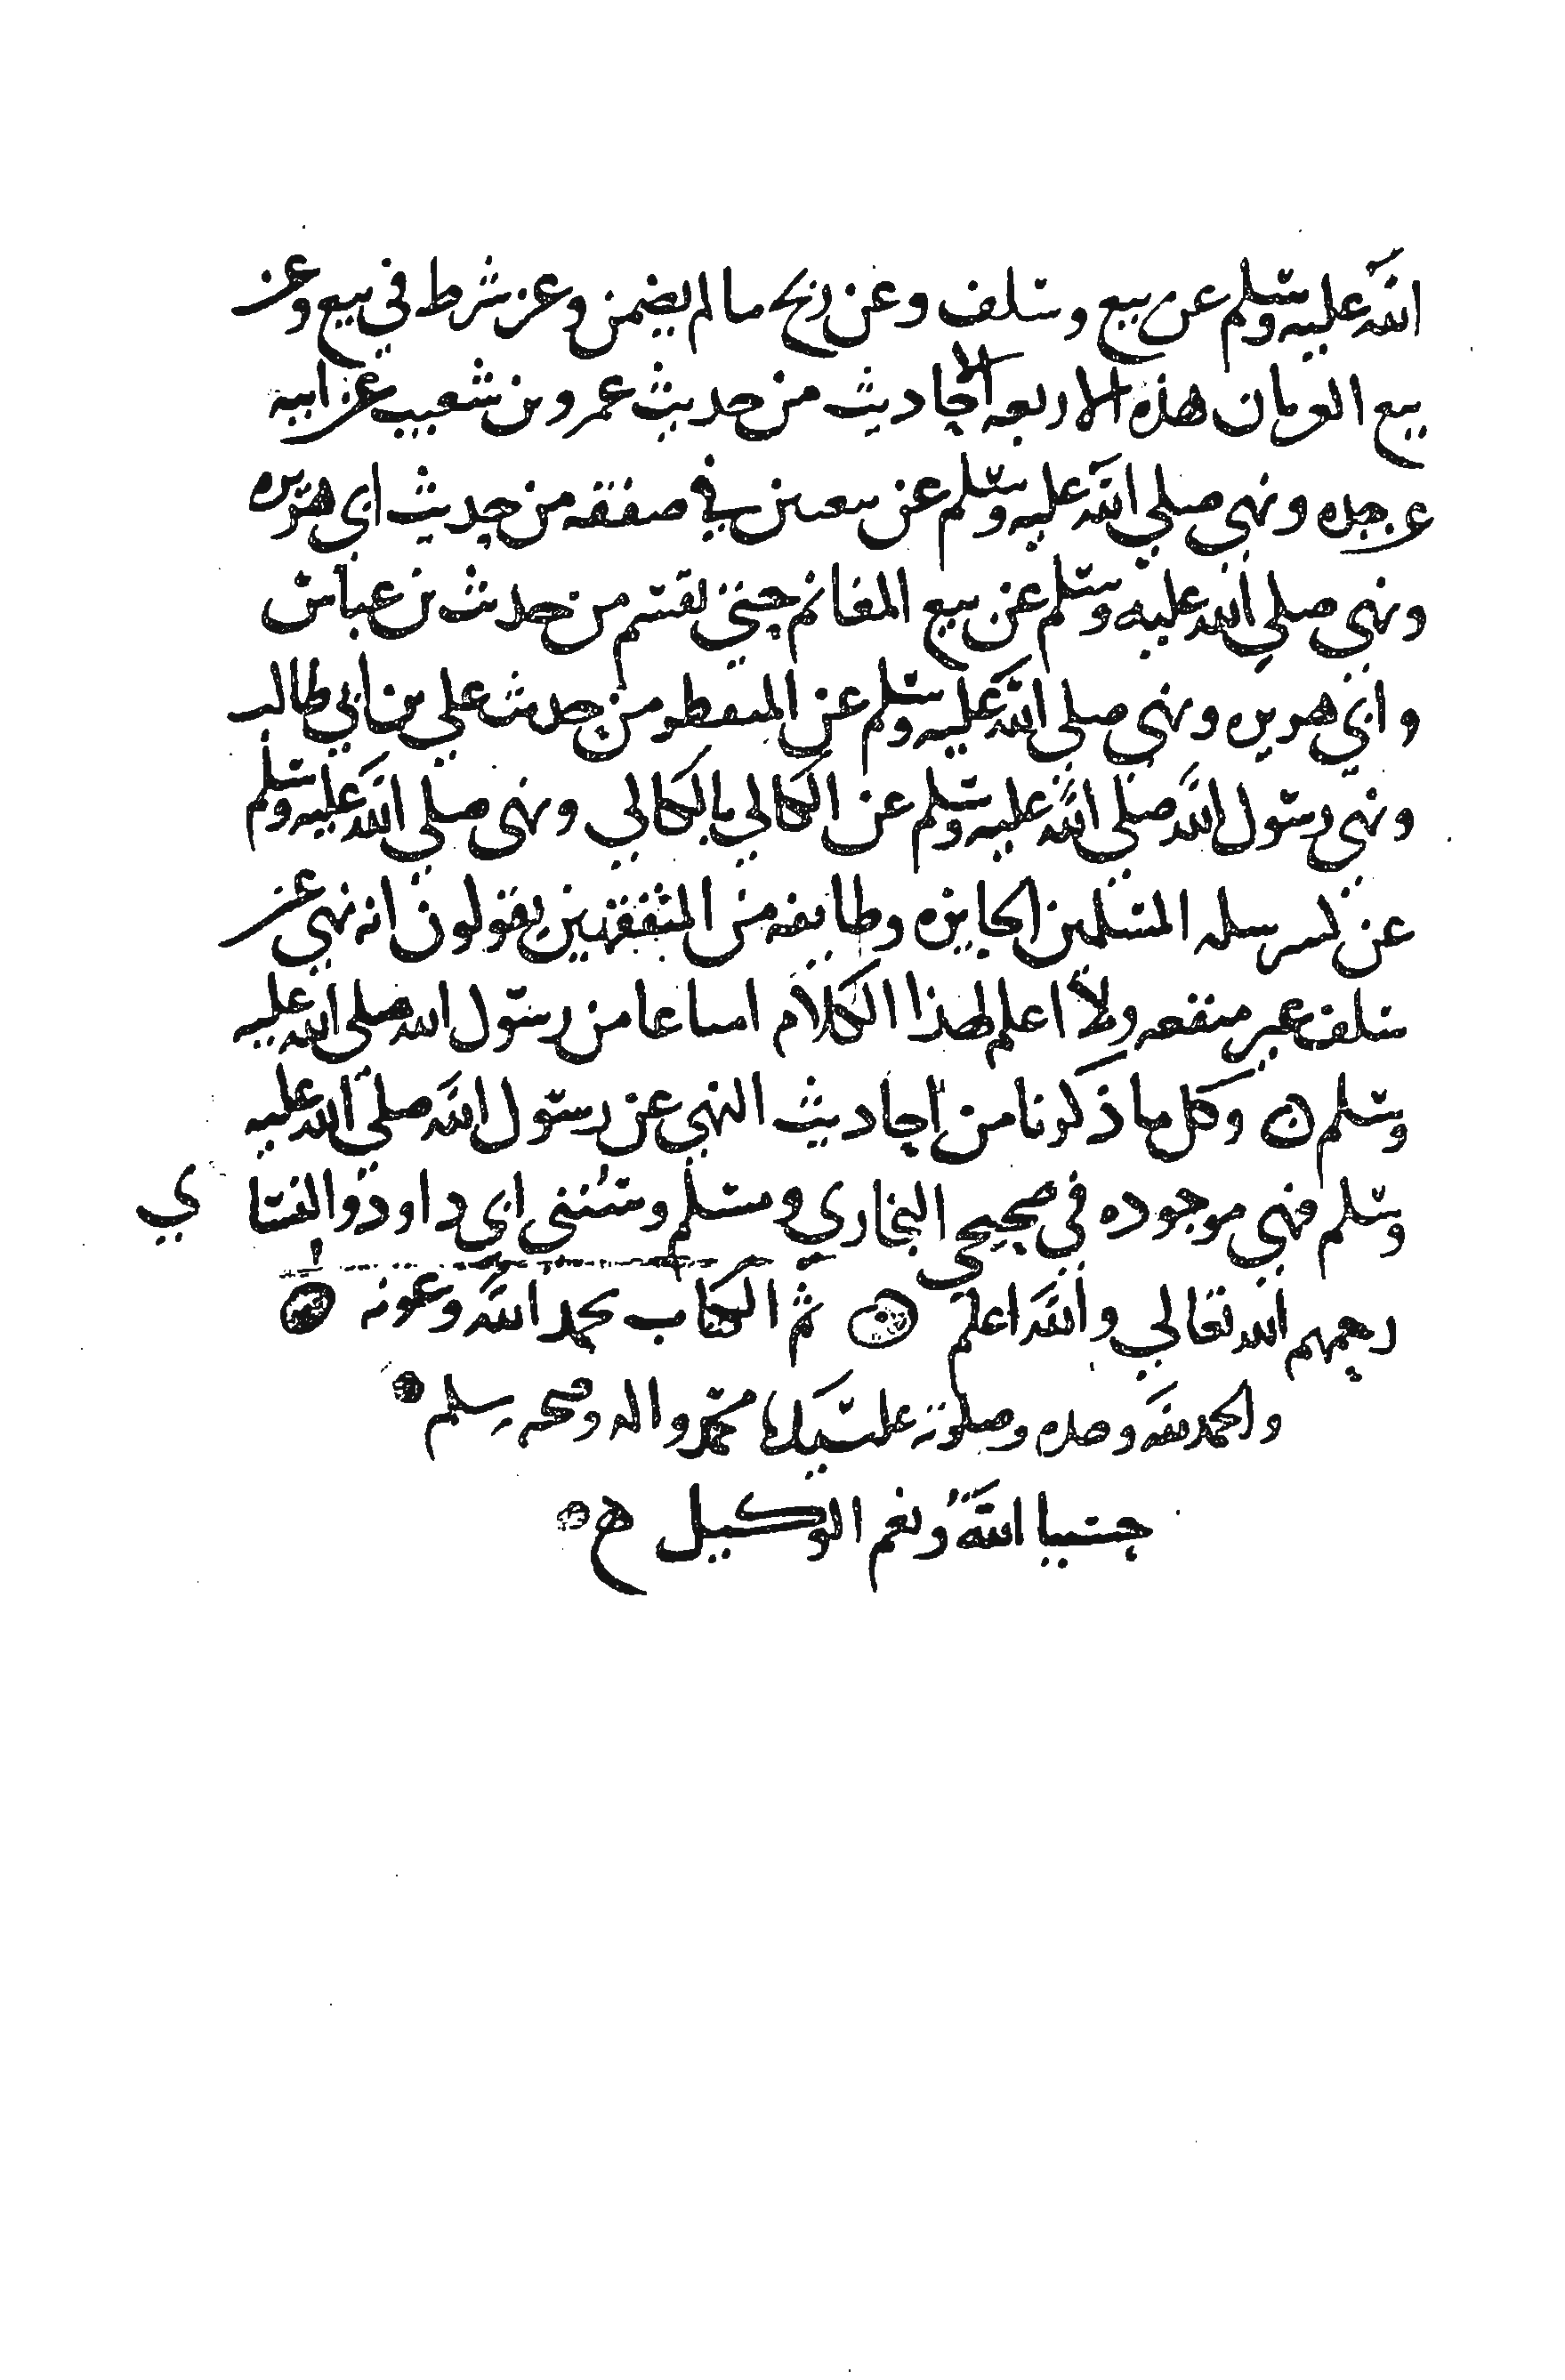 الله عليه وسلم عن بيع وسلف وعن ربح ما لم يضمن وعن شرط في بيع وعن
بيع العربان هذه الاربعه الاحاديث من حديث عمرو بن شعيب عن ابيه
عن جده ونهى صلى الله عليه وسلم عن بيعتين في صفقه من حديث ابي هريره
ونهى صلى الله عليه وسلم عن بيع المغانم حتى تقسم من حديث بن عباس
وابي هريره ونهى صلى الله عليه وسلم عن المضطر من حديث علي بن ابي طالب
ونهى رسول الله صلى الله عليه وسلم عن الكالي بالكالي ونهى صلى الله عليه وسلم
عن كسر سكه المسلمين الجايزه وطايفه من المتفقهين يقولون انه نهى عن
سلف جر منفعه ولا اعلم لهذا الكلام من رسول الله صلى الله عليه
وسلم ن وكل ما ذكرنا من احاديث النهي عن رسول الله صلى الله عليه
وسلم فهي موجوده في صحيحي البخاري ومسلم وسنني ابي داود والنسا ي
رحمهم الله تعالى والله اعلم تم الكتاب بحمد الله وعونه
والحمد لله وحده وصلوته على سيدنا محمد واله وصحبه وسلم
حسبنا الله ونعم الوكيل